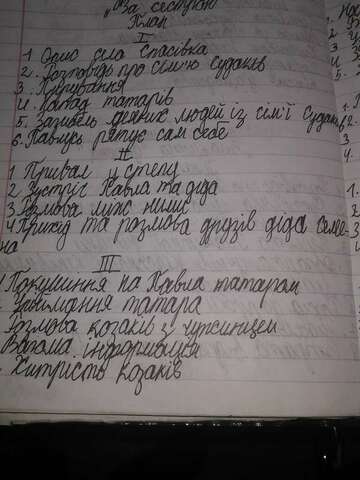 „За сестрою"
План
I
1. Опис села Спасівка
2. Розповідь про сім'ю Судаків
3. Пирування
4. Напад татарів
5. Загибель деяких людей із сім'ї Судаків
6. Павлусь рятує сам себе
II
1 Привал у степу
2 Зустріч Павла та діда
3 Розмова між ними
4 Прихід та розмова друзів діда Семе-
на
III
Покушиння на Павла татаром
татара
Розмова козаків з
Вагома інформація
Хитрість козаків